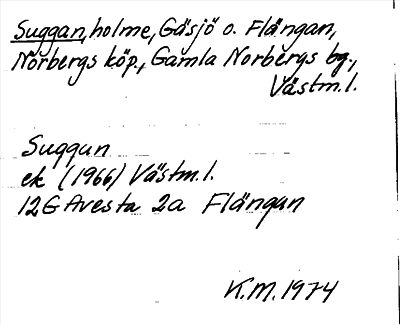 Suggan, holme, Gäsjö o. Flängan,
Norbergs köp., Gamla Norbergs bg.,
Västm.l.
Suggan
ek (1966) Västm.l.
12G Avesta 2a Flängan
K.M. 1974